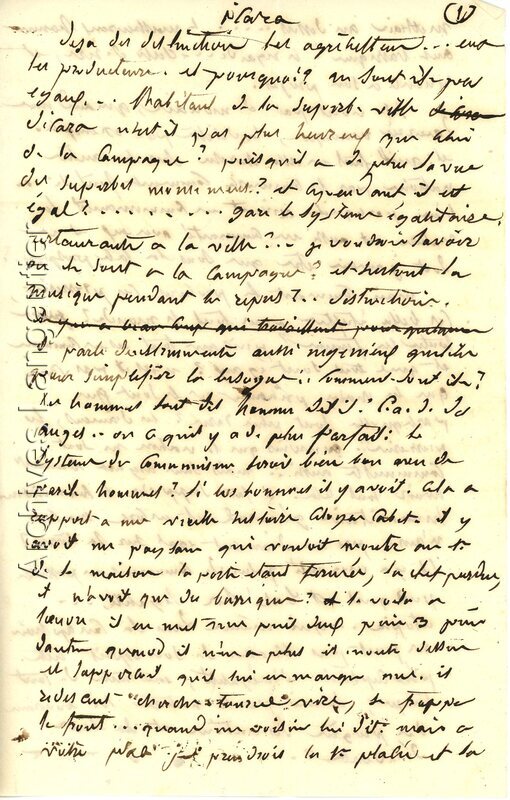 icara
(1)
Deja des distinction les agriculteur... ens
les producteurs. et pourquoi? ne sont ils pas
egaux... l'habitant de la superbe ville
d'icara n'est il pas plus heureux que celui
de la Campagne? puisqu'il a de plus la vue
des superbes monuments? et cependant il est
égal? ......... gare le systeme égalitaire.
restaurants a la ville?.. je voudrois savoir
s'il y en a a la Campagne? et surtout la
musique pendant les repas?.. distinction.
il y en a beaucoup qui travaillent pour
il parle d'instruments aussi ingenieux
pour simplifier la besogne.. Comment sont ils?
les hommes sont des hommes dit il. C.a.d. des
anges.. on a qu'il y a de plus parfait: le
systeme du Communisme seroit bien bon avec de
pareils hommes? si les hommes il y avoit. Cela a
rapport a une vieille histoire Citoyen Cabet. il y
avoit un paysan qui vouloit monter au 1er
de la maison la porte etant fermée, la clef perdue,
il n'avoit que des barriques? et le voila a
l'oeuvre il en met une puis deux puis 3 puis
d'autre quand il n'en a plus il monte dessus
et s'apperçoit qu'il lui en manque une. il
redescend cherche tourne vire, se frappe
le front... quand un voisin lui dit. mais a
votre place je prendrois la 1re placée et la
Archives Langentier